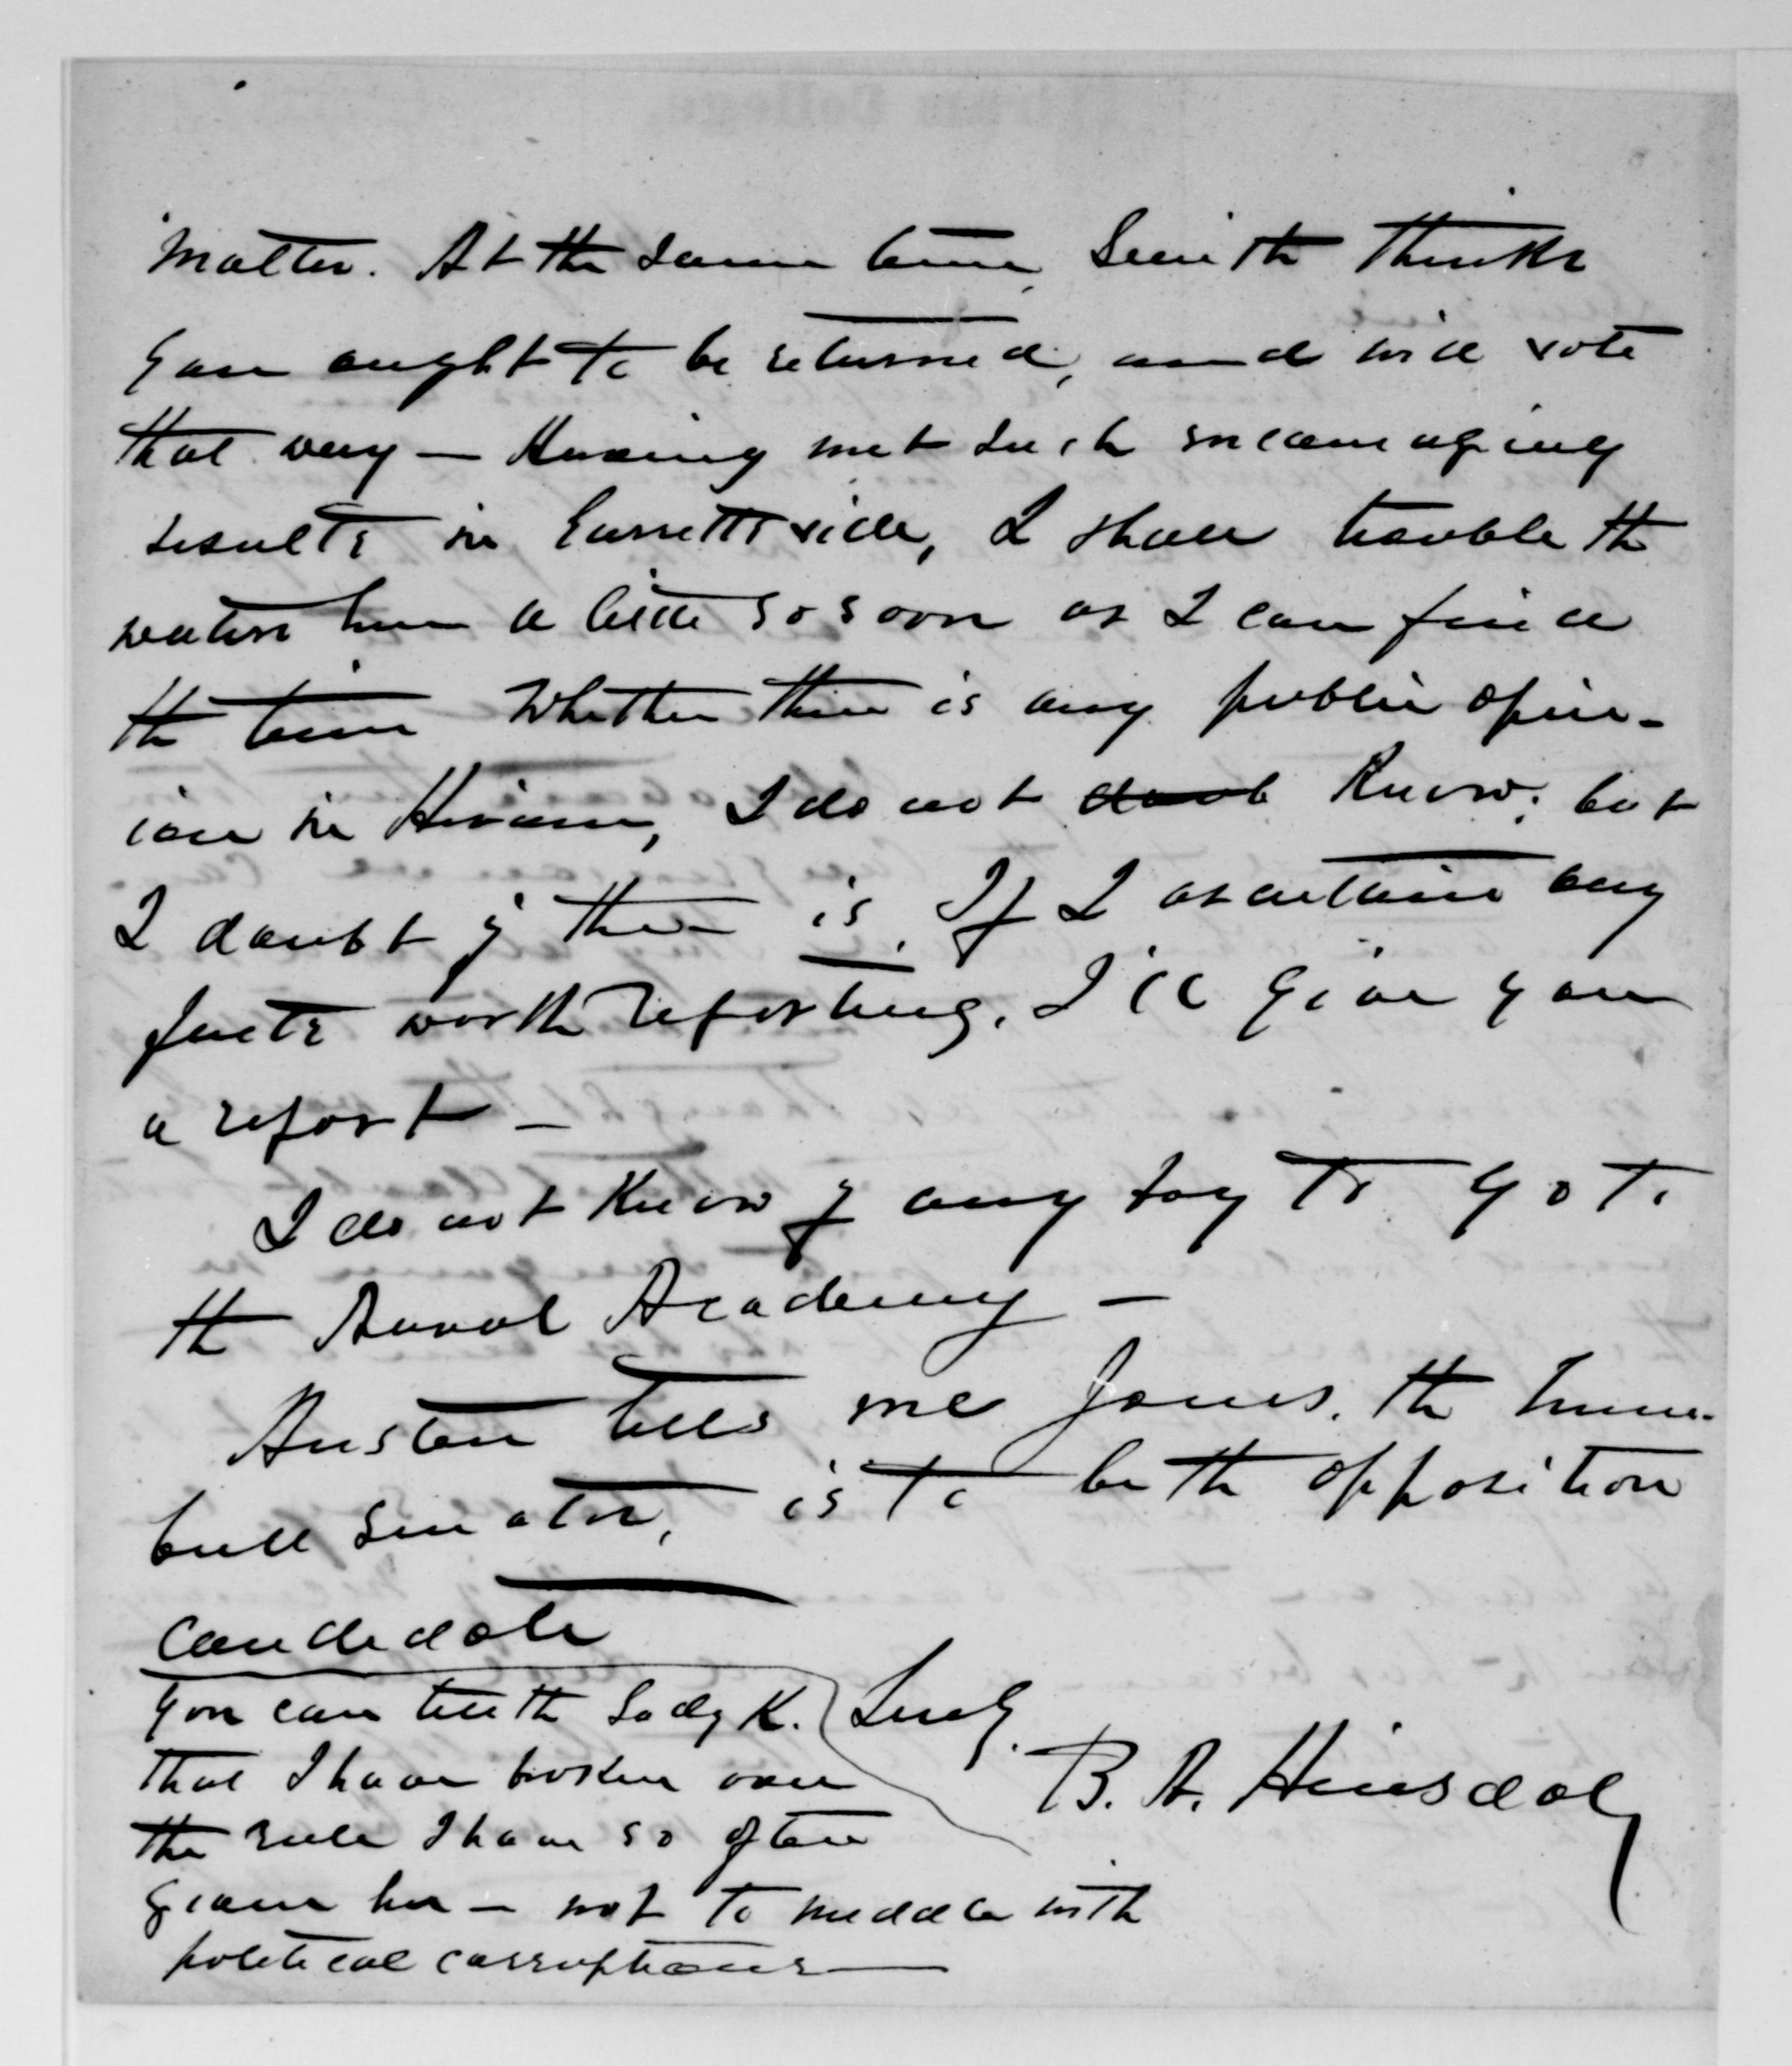 matter. At the same time, Smith thinks
you ought to be returned, and will vote
that way — Having met such encouraging
results in Garrettsville, I shall trouble the
waters here a little so soon as I can find
the time Whether there is any public opin-
ion in Hiram, I do not doub know; but
I doubt if there is. If I ascertain any
facts worth reporting, I'll give you
a report —
I do not know of any boy to go to
the Naval Academy —
Austin tells me Jones, the Trum-
bull Senator, is to be the opposition
candidate
Truly.
B. A. Hinsdale
You can tell the Lady K.
that I have broken over
the rule I have so often
given her — not to meddle with
political corruptions —